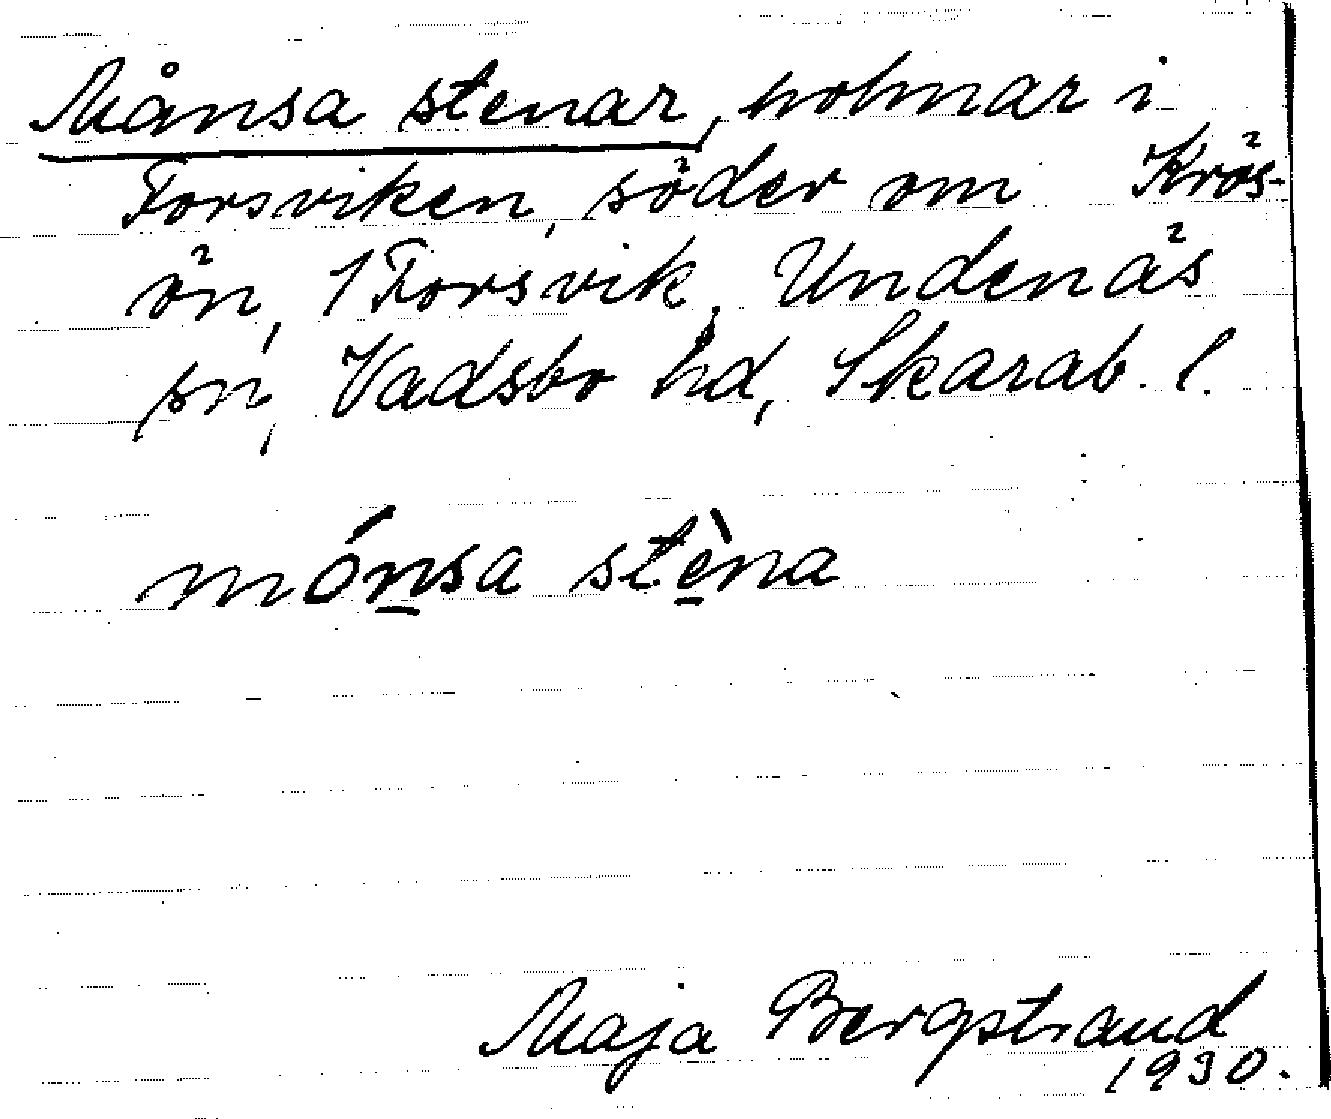 Månsa stenar, holmar i
Forsviken, söder om Krös-
ön, 1 Forsvik, Undenäs
sn, Vadsbo hd, Skarab. l.
mónsa stèna
Maja Bergstrand
1930.